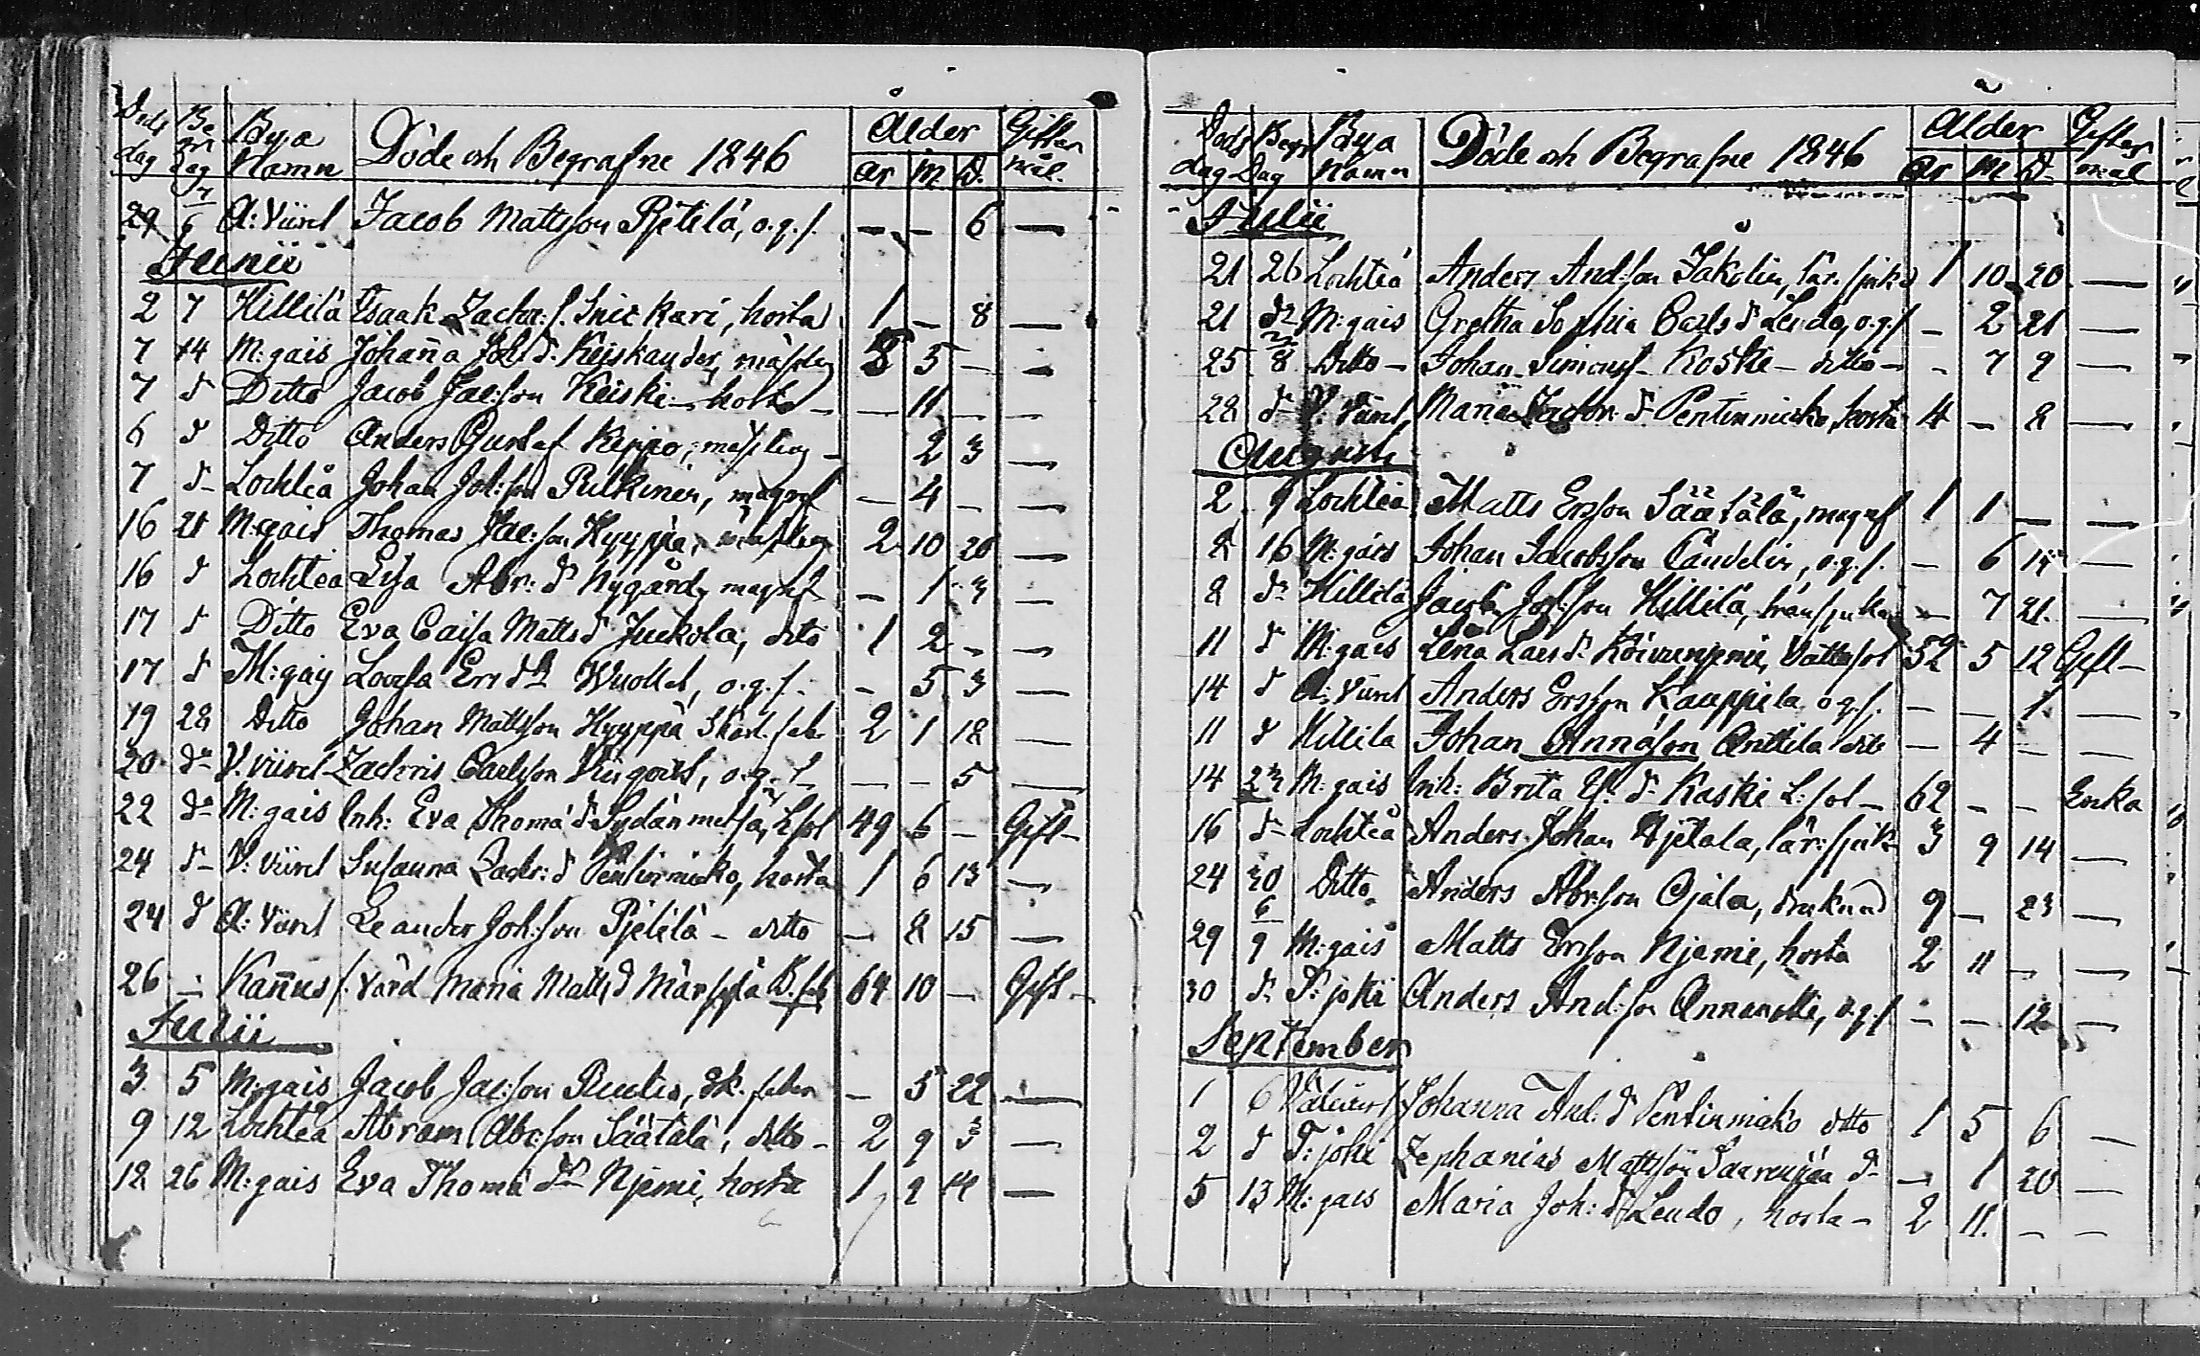 Döds dag Be gr dag Bya Namn Döde och Begrafne 1846 Ålder år M D. Gifter mål.
29 7/6 A: Viirret Jacob Mattsson Pjetilä, o.g.s. — — 6 —
Junii
2 7 Hillilä Isaak Zachr: s. Snickari, hosta 1 — 8 —
7 14 M:gais Johanna Joh: d. Keiskander, mäsling 5 — —
7 d Ditto Jacob Jac:son Keiski — hosta — — 11 — —
6 d Ditto Anders Gustaf Keppo, mässling — 2 3 —
7 d- Lochteå Johan Joh:son Pulkinen, magref — 4 — —
16 21 M:gais Thomas Jac:son Hyyppä, mässling 2 10 20 —
16 d Lochteå Lisa Abr: dr Nygård, magref — 1 3 —
17 d Ditto Eva Caisa Matts d. Juckola, ditto 1 2 — —
17 d M:gais Lovisa Ers dr Wuollet, o.g.s. — 5 3 —
19 28 Ditto Johan Mattsson Hyyppä Skarl. feb 2 1 18 —
20 d- V. Viirret Zachris Carlsson Viirqvist, o.g.s. — — 5 —
22 d- M:gais Inh: Eva Thomä d. Sydänmetsä, L:sot 49 6 — Gift —
24 d- V: Viirret Susanna Zachr: d Pentinmicko, hosta 1 6 13 —
24 d A: Viirret Leander Joh:son Pjetilä — ditto — 8 15 —
26 — Kannus s. värd Maria Matts d Märsylä B. feb 64 10 — Gift —
Julii
3 5 M:gais Jacob Jac:son Ruutis, Sk. feber — 5 22 —
9 12 Lochteå Abram Abr:son Säätälä, ditto — 2 9 3 —
18 26 M:gais Eva Thomä dr Njemi, hosta 1 2 14 —
Döds dag Begr Dag Bya Namn Döde och Begrafne 1846 Ålder år M D. Gifter mål
Julii
21 26 Lochteå Anders And:son Jakolin, lår. sjuka 1 10 20 —
21 dr M:gais Gretha Sophia Carls d Leudo, o.g.s — 2 21 —
25 2/8 Ditto — Johan Simonss. Koski — ditto — — 7 9 —
28 dr V. Viirret, Maria Zachr: d. Pentinmicko, hosta 4 — 8 —
Augusti
2 9 Lochteå Matts Ersson Säätälä, magref 1 1 — —
8 16 M:gais Johan Jacobsson Caudelin, o.g.s. — 6 14 —
8 dr Hillilä Jacob Joh:son Hillilä, bränsjuka — 7 21. —
11 d M:gais Lena Lars d. Koivunjemi, Vattusot 52 5 12 Gift —
14 d A: Viirret Anders Ersson Kauppila o.g.s. — — 1 —
11 d Hillilä Johan Annäson Anttila ditto — 4 — —
14 23 M:gais Inh: Brita d. Kaski L:sot — 62 — — Enka
16 d- Lochteå Anders Johan Hjetala, lår:sjuk 3 9 14 —
24 30 Ditto Anders Abr:son Ojala, druknad 9 — 23 —
29 6/9 M:gais Matts Ersson Njemi, hosta 2 11 — —
30 d- P: joki Anders And:son Annanolli, o.g.s — — 12 —
September
1 6 Johanna And. d Pentinmicko ditto 1 5 6 —
2 d P: joki Zephanias Mattsson Saarenpää d- — 1 20 —
5 13 M:gais Maria Joh: dr Leudo, hosta — 2 11. — —